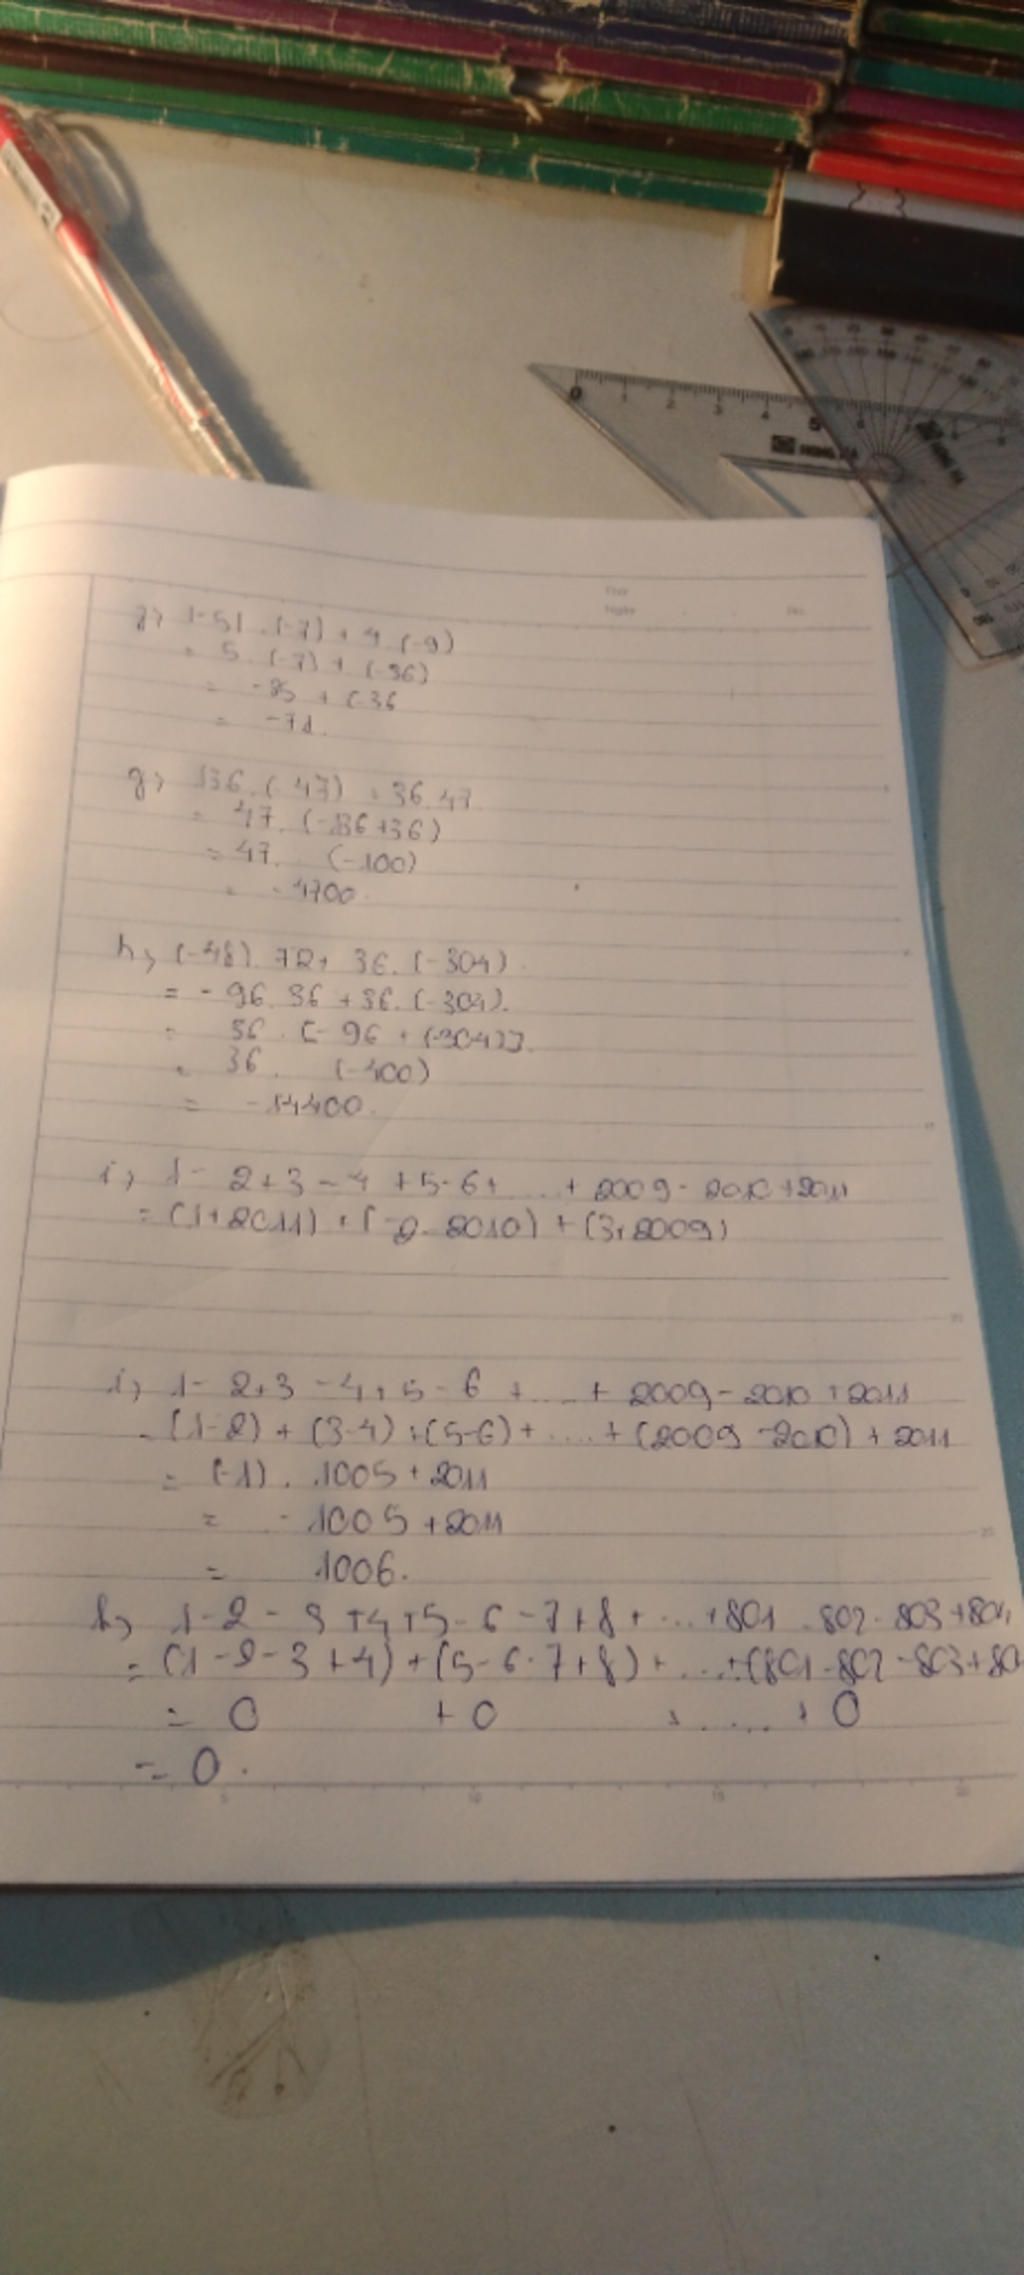 |-5| . (-7) + 4 . (-9)
= 5 . (-7) + (-36)
= -35 + (-36
= -71.
g, 136 . (-47) + 36 . 47
= 47 . (-136 + 36)
= 47 . (-100)
= -4700.
h, (-48) . 72 + 36 . (-304).
= -96 . 36 + 36 . (-304).
= 36 . [-96 + (-304)].
= 36 . (-400)
= -14400.
i, 1 - 2 + 3 - 4 + 5 - 6 + .... + 2009 - 2010 + 2011
= (1 + 2011) + (-2 - 2010) + (3 + 2009)
i, 1 - 2 + 3 - 4 + 5 - 6 + .... + 2009 - 2010 + 2011
= (1-2) + (3-4) + (5-6) + .... + (2009 - 2010) + 2011
= (-1) . 1005 + 2011
= -1005 + 2011
= 1006.
k, 1 - 2 - 3 + 4 + 5 - 6 - 7 + 8 + ... + 801 - 802 - 803 + 804
= (1 - 2 - 3 + 4) + (5 - 6 - 7 + 8) + .... + (801 - 802 - 803 + 80
= 0 + 0 + ..... + 0
= 0.